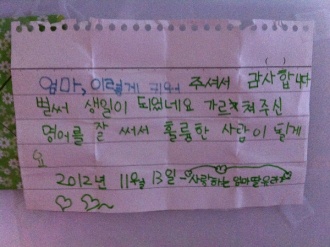 엄마, 이렇게 키워 주셔서 감사합니다
벌써 생일이 되었네요 가르쳐주신
영어를 잘 써서 훌륭한 사람이 될게
요
2012년 11월 13일 -사랑하는 엄마딸